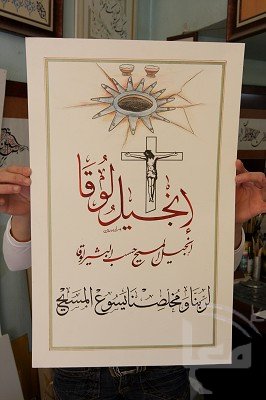 إنجيل لوقا
إنجيل المسيح حسب البشير لوقا
لربنا ومخلصنا يسوع المسيح